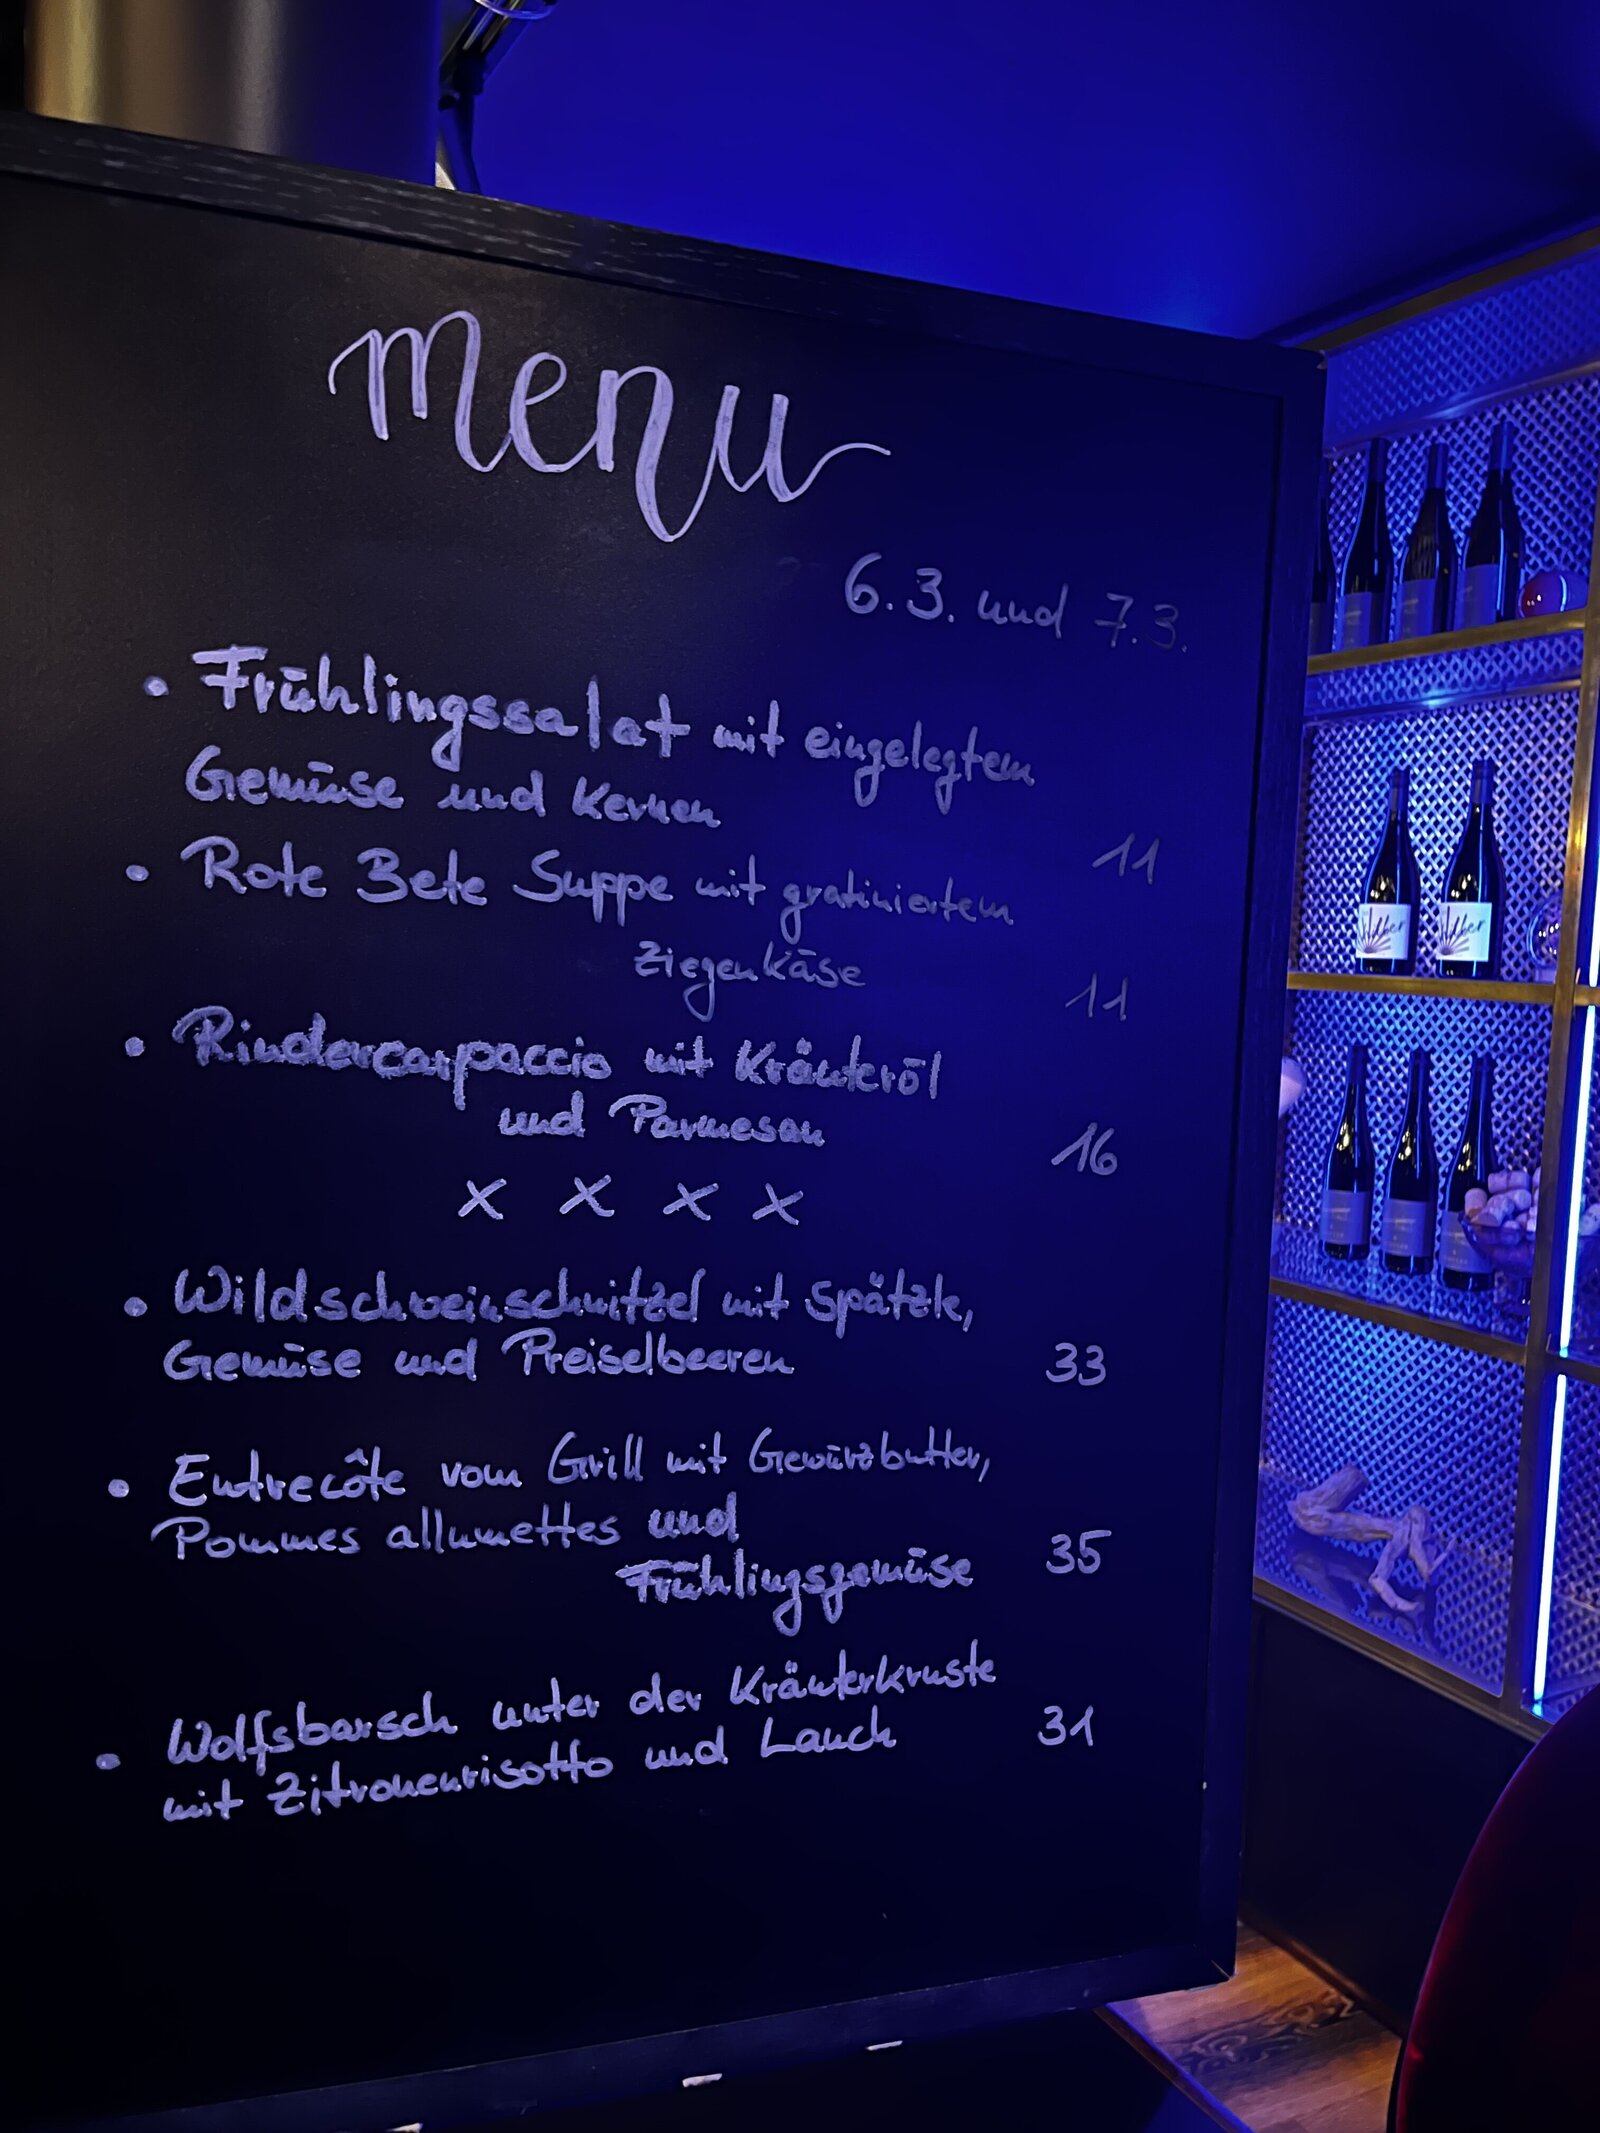 Menu
6.3. und 7.3.
• Frühlingssalat mit eingelegtem
Gemüse und Kernen 11
• Rote Bete Suppe mit gratiniertem
Ziegenkäse 11
• Rindercarpaccio mit Kräuteröl
und Parmesan 16
x x x x
• Wildschweinschnitzel mit Spätzle,
Gemüse und Preiselbeeren 33
• Entrecôte vom Grill mit Gewürzbutter,
Pommes allumettes und 35
Frühlingsgemüse
• Wolfsbarsch unter der Kräuterkruste
mit Zitronenrisotto und Lauch 31